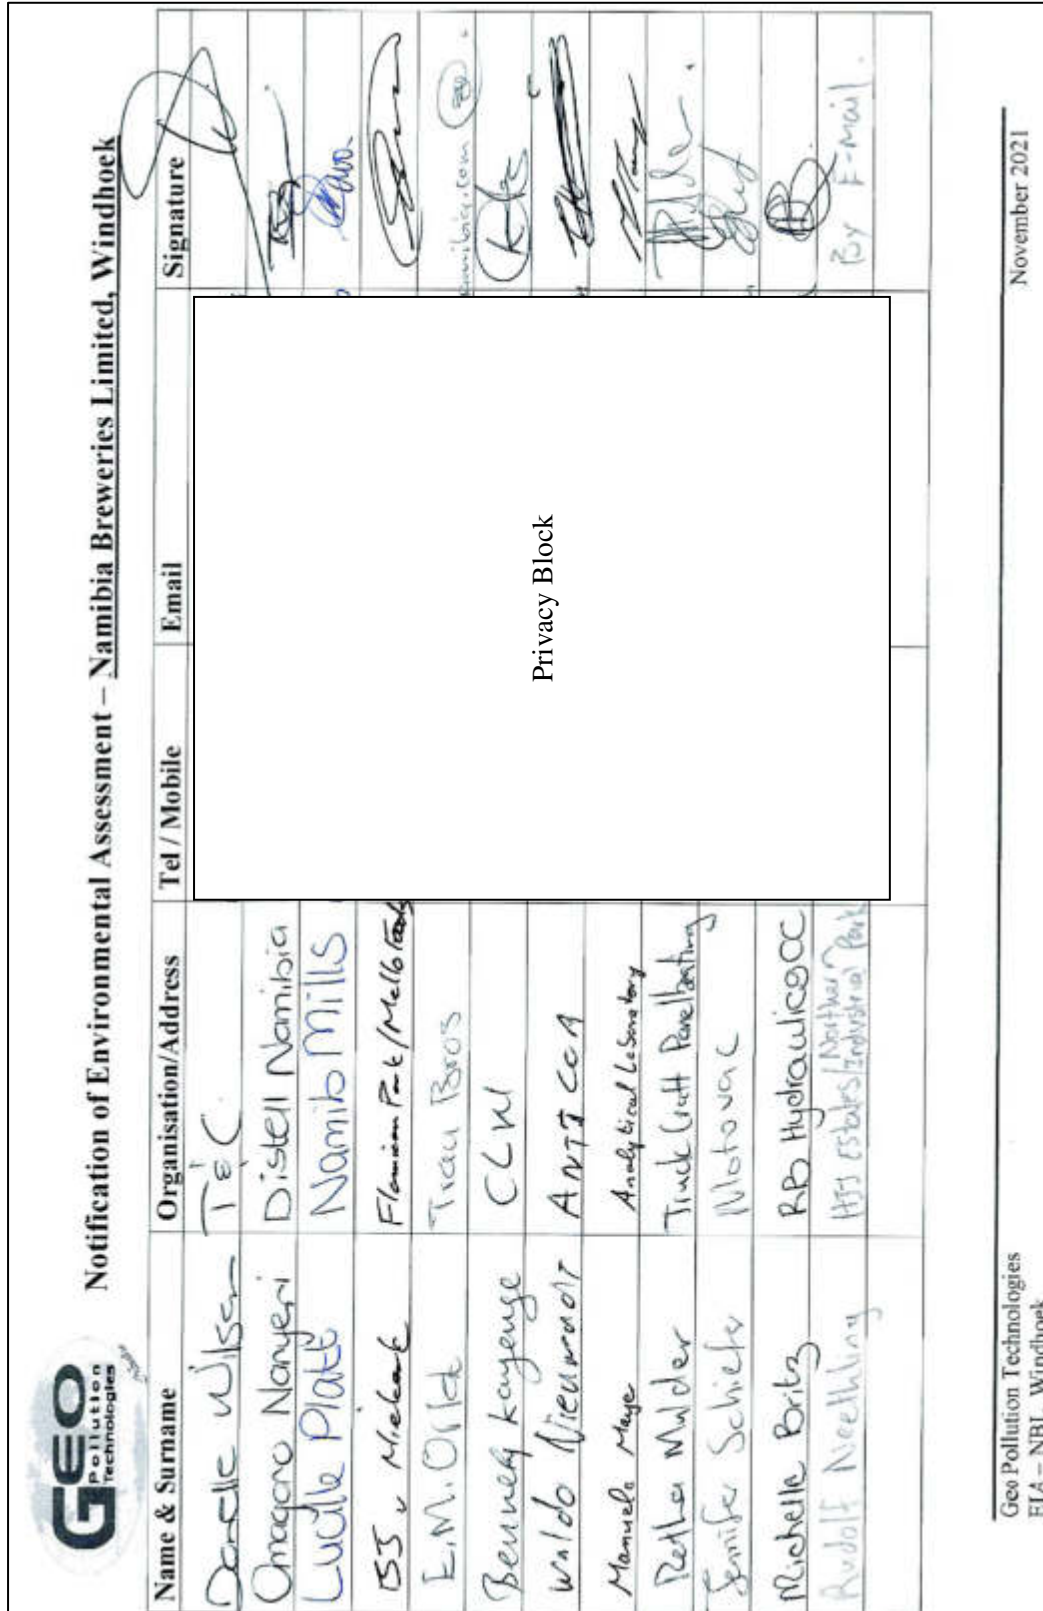 GEO
Pollution
Technologies
Notification of Environmental Assessment – Namibia Breweries Limited, Windhoek
Name & Surname Organisation/Address Tel / Mobile Email Signature
Danelle Wilsen TEC
Omagano Nanyeni Distell Namibia
Lucille Platt Namib Mills
BJ v Niekerk Flamingo Park/Mello Foods
E.M. Trau Bros
Bennedy Kayenge CLW
Waldo Nieuwoudt
Manuela Mayer Analytical Laboratory
Retha Mulder Truck Craft Panelbeating
Jennifer Schiefer Motovac
Michelle Britz RB Hydraulics CC
Rudolf Neethling Estates/Northern Industrial Park By E-mail.
Privacy Block
Geo Pollution Technologies November 2021
EIA – NBL, Windhoek